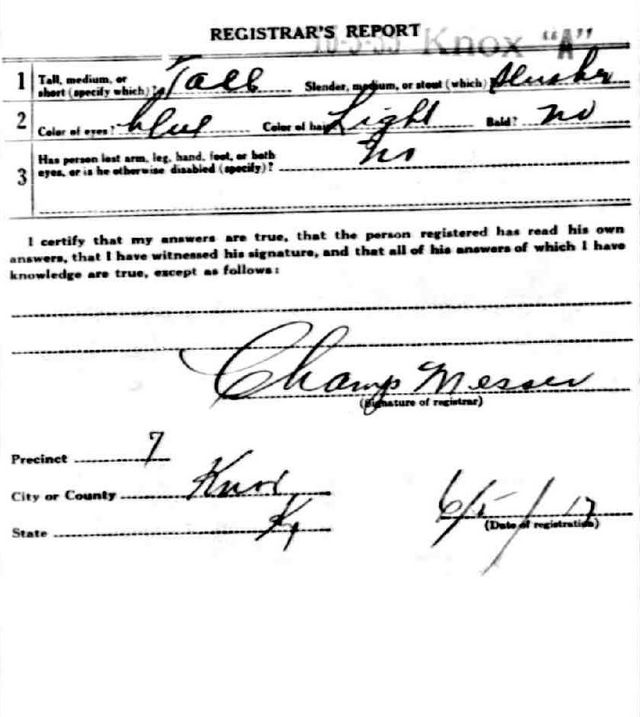 REGISTRAR'S REPORT
Knox "A"
1 Tall, medium, or short (specify which)? Tall Slender, medium, or stout (which)
2 Color of eyes? blue Color of hair Light Bald? no
3 Has person lost arm, leg, hand, foot, or both
eyes, or is he otherwise disabled (specify)? no
I certify that my answers are true, that the person registered has read his own
answers, that I have witnessed his signature, and that all of his answers of which I have
knowledge are true, except as follows:
Champ Messer
(Signature of registrar)
Precinct 7
City or County Knox
State Ky
6/5/17
(Date of registration)